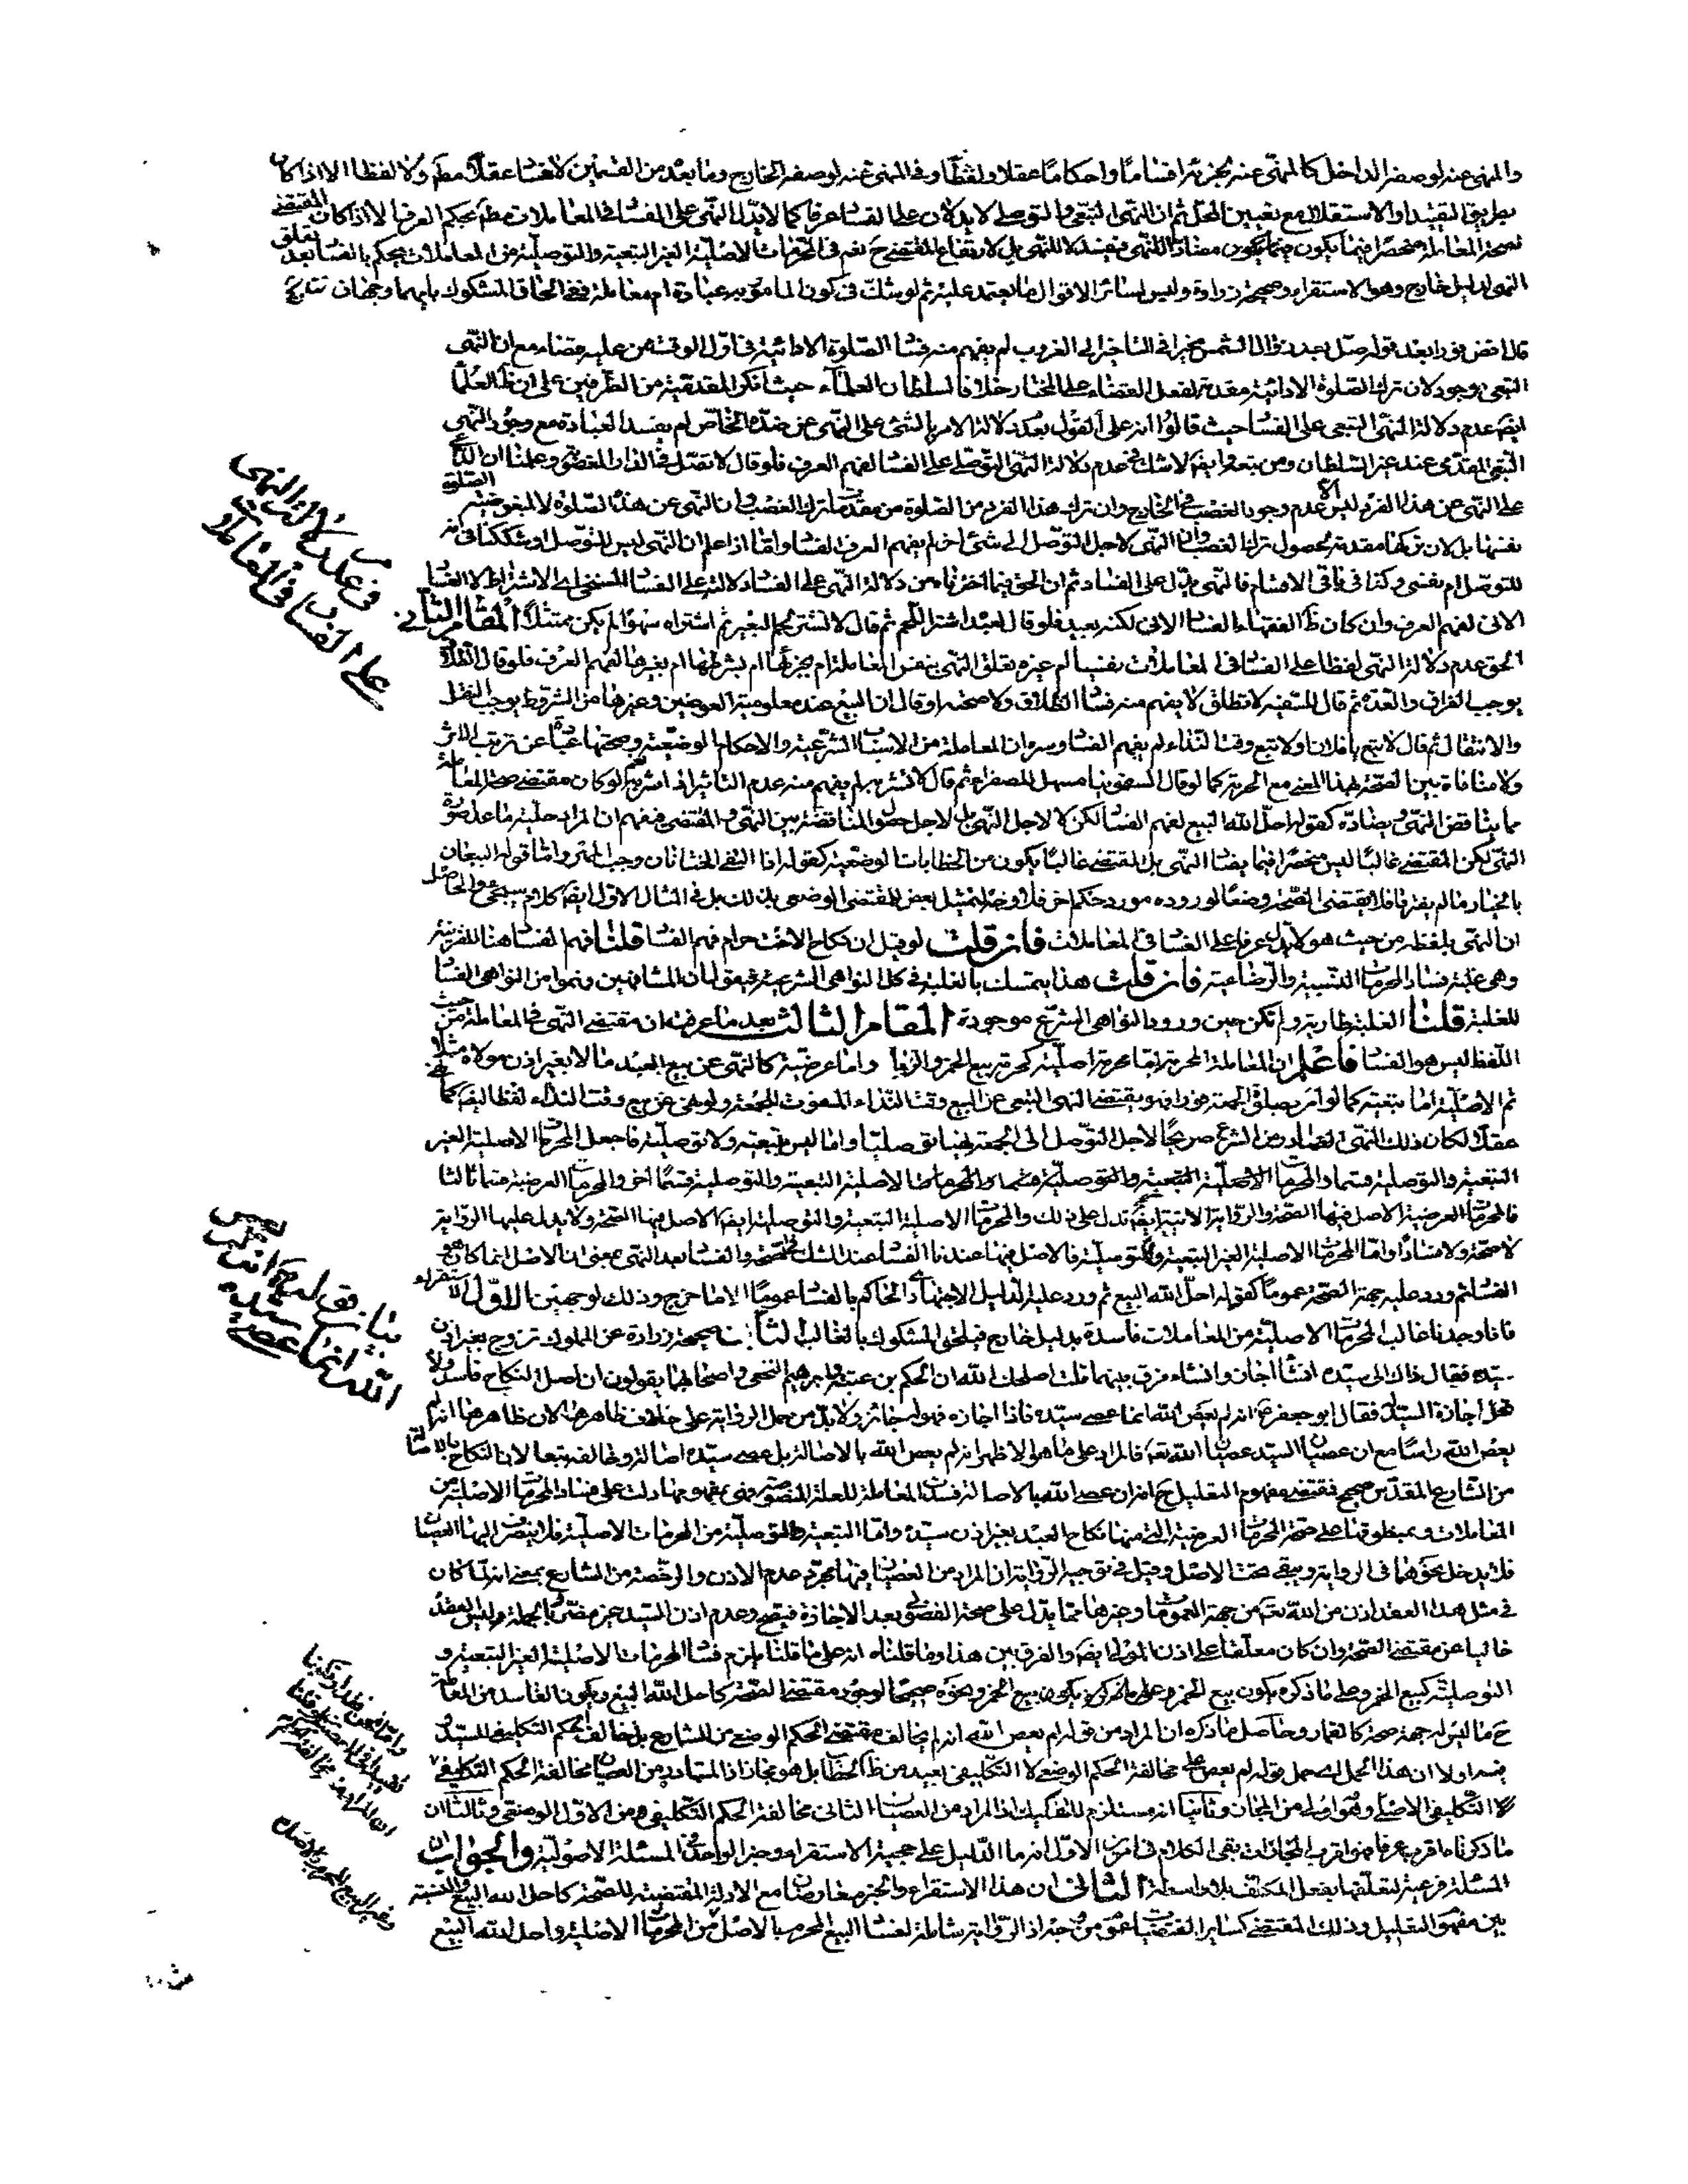 والمنهى عنه لوصفه الداخل كالمنهى عنه لجزئه اقساما واحكاما عقلا ولفظا وفى المنهى عنه لوصفه الخارج وما بعده من القسمين لا فسا عقلا مطم ولا لفظا الا اذا كان
بطريق التقييد او الاستقلال مع تعيين المحل ثم ان النهى التبعى والتوصلى لا يدلان على الفسا عرفا كما لا يدل النهى على الفسا فى المعاملات مطم بحكم العرف الا اذا كان المقتضى
لصحة المعاملة منحصرا فيما يكون مضادا للنهى فيفسد لا للنهى بل لارتفاع المقتضى ح نعم فى المحرمات الاصلية الغير التبعية والتوصلية من المعاملات يحكم بالفسا بعد تعلق
النهى لدليل خارج وهو الاستقراء وصحيحة زرارة وليس لسائر الاقوال ما يعتمد عليه ثم لو شك فى كون المامور به عبادة ام معاملة ففى الحاق المشكوك بايهما وجهان
قال اقض فورا بعد قوله صل بعد زوال الشمس مخيرا فى التاخير الى الغروب لم يفهم منه فسا الصلوة الادائية فى اول الوقت ممن عليه قضاء مع ان النهى
التبعى موجود لان ترك الصلوة الادائية مقدمة لفعل القضاء على المختار خلافا لسلطان العلماء حيث انكر المقدمية من الطرفين على ان ظ العلما
ايضا عدم دلالة النهى التبعى على الفسا حيث قالوا انه على القول بعدم دلالة الامر بالشئ على النهى عن ضده الخاص لم يفسد العبادة مع وجود النهى
التبعى المقدمى عند غير السلطان ومن تبعه وايضا لا شك فى عدم دلالة النهى التوصلى على الفسا لفهم العرف فلو قال لا تصل فى الدار المغصوبة وعلمنا ان
على النهى عن هذا الفرد ليس الا عدم وجود الغصب فى الخارج وان ترك هذا الفرد من الصلوة من مقدمات ترك الغصب وان النهى عن هذه الصلوة لا لمبغوضية الصلوة
بنفسها بل لان تركها مقدمة لحصول ترك الغصب وان النهى لاجل التوصل الى شئ اخر لم يفهم العرف الفسا واما اذا علم ان النهى ليس للتوصل او شككنا فى انه
للتوصل ام نفسى وكنا فى باقى الاقسام فالنهى يدل على الفساد ثم ان الحق فيما اخترناه من دلالة النهى على الفساد دلالته على الفسا الاشتراطى لا الفسا
الانى لفهم العرف وان كان ظ الفقهاء الفسا الانى لكنه بعيد فلو قال لعبده اشتر اللحم ثم قال لا تشتر لحم البقر ثم اشتراه سهوا لم يكن ممتثلا المقام الثانى
الحق عدم دلالة النهى لفظا على الفسا فى المعاملات نفسيا ام غيره تعلق النهى بنفس المعاملة ام بجزئها ام بشرطها ام بغيرها لفهم العرف فلو قال الطلاق
يوجب الفراق والعدة ثم قال لا تطلق لا يفهم منه فسا الطلاق ولا صحته او قال ان البيع عند معلومية العوضين وغيرها من الشروط يوجب النقل
والانتقال ثم قال لا تبع يا فلان او لا تبع وقت النداء لم يفهم الفسا وسره ان المعاملة من الاسباب الشرعية والاحكام الوضعية وصحتها عبارة عن ترتب الاثر
ولا منافاة بين الصحة بهذا المعنى مع الحرمة كما لو قال السقمونيا مسهل للصفراء ثم قال لا تشربه لم يفهم منه عدم التاثير اذا شربه نعم لو كان مقتضى صحة المعاملة
مما يناقض النهى ويضاده كقوله احل الله البيع لفهم الفسا لكن لا لاجل النهى بل لاجل حصول المناقضة بين النهى والمقتضى فيفهم ان المراد حلية ما عدا صورة
النهى لكن المقتضى غالبا ليس منحصرا فيما يضاد النهى بل المقتضى غالبا يكون من الخطابات الوضعية كقوله اذا التقى الختانان وجب المهر واما قوله البيعان
بالخيار ما لم يفترقا فلا يقتضى الصحة وضعا لوروده مورد حكم اخر فلا وجه لتمثيل بعض للمقتضى الوضعى بذلك بل فى المثال الاول ايضا كلام سيجئ والحاصل
ان النهى بلفظه من حيث هو لا يدل عرفا على الفسا فى المعاملات فان قلت لو قيل ان نكاح الاخت حرام فهم الفسا قلنا فهم الفسا هنا للقرينة
وهى غلبة فساد المحرمات النسبية والرضاعية فان قلت هذا يتمسك بالغلبة فى كل النواهى الشرعية فيقول ان المشافهين فهموا من النواهى الفسا
للغلبة قلنا الغلبة طارية ولم تكن حين ورود النواهى الشرع موجودة المقام الثالث بعد ما عرفت ان مقتضى النهى فى المعاملة من حيث
اللفظ ليس هو الفسا فاعلم ان المعاملة المحرمة اما محرمة اصلية كحرمة بيع الخمر والربا واما عرضية كالنهى عن بيع العبد مالا بغير اذن مولاه مثلا
ثم الاصلية اما تبعية كما لو امر بصلوة الجمعة فورا فهو يقتضى النهى التبعى عن البيع وقت النداء المفوت للجمعة ولو نهى عن بيع وقت النداء لفظا ايضا كما
عقلا لكان ذلك النهى الصادر من الشرع صريحا لاجل التوصل الى الجمعة نهيا توصليا واما ليس بتبعية ولا توصلية فاجعل المحرمات الاصلية الغير
التبعية والتوصلية قسما والمحرمات الاصلية التبعية والتوصلية قسما اخر والمحرمات العرضية قسما ثالثا
فالمحرمات العرضية الاصل فيها الصحة والرواية الاتية ايضا تدل على ذلك والمحرمات الاصلية التبعية والتوصلية ايضا الاصل فيها الصحة ولا يدل عليها الرواية
لا صحة ولا فسادا واما المحرمات الاصلية الغير التبعية والتوصلية فالاصل فيها عندنا الفسا عند الشك فى الصحة والفسا بعد النهى بمعنى ان الاصل انما كان هو
الفسا ثم ورد عليه حجة الصحة عموما كقوله احل الله البيع ثم ورد عليه الدليل الاجتهادى الحاكم بالفسا عموما الا ما خرج وذلك لوجهين الاول الاستقراء
فانا وجدنا غالب المحرمات الاصلية من المعاملات فاسدة بدليل خارج فيلحق المشكوك بالغالب الثانى صحيحة زرارة عن المملوك تزوج بغير اذن
سيده فقال ذاك الى سيده ان شا اجاز وان شاء فرق بينهما قلت اصلحك الله ان الحكم بن عتيبة وابرهيم النخعى واصحابهما يقولون ان اصل النكاح فاسد ولا
تحل اجازة السيد له فقال ابو جعفر ع انه لم يعص الله انما عصى سيده فاذا اجازه فهو له جائز ولا بد من حمل الرواية على خلاف ظاهرها لان ظاهرها انه لم
يعص الله راسا مع ان عصيان السيد عصيان الله تعالى فالمراد على ما هو الاظهر انه لم يعص الله بالاصالة بل عصى سيده اصالة وخالفه تبعا لان النكاح بالاصالة
من الشارع المقدس صحيح فمقتضى مفهوم التعليل ح انه ان عصى الله بالاصالة فسدت المعاملة للعلة المنصوصة فهى بمفهومها دلت على فساد المحرمات الاصلية من
المعاملات وبمنطوقها على صحة المحرمات العرضية التى منها نكاح العبد بغير اذن سيده واما التبعية والتوصلية من المحرمات الاصلية فلا ينصرف اليها العصيان
فلا يدخل نحوهما فى الرواية ويبقى تحت الاصل وقيل فى توجيه الرواية ان المراد من العصيان فيها مجرد عدم الاذن والرخصة من الشارع بمعنى انه لما كان
فى مثل هذا العقد اذن من الله تعالى من جهة العمومات وغيرها مما يدل على صحة الفضولى بعد الاجازة فيصح وعدم اذن السيد غير مضر وبالجملة وليس العقد
خاليا عن مقتضى الصحة وان كان معلقا على اذن المولى ايضا والفرق بين هذا وما قلناه انه على ما قلنا يلزم فسا المحرمات الاصلية الغير التبعية و
التوصلية كبيع الخمر وعلى ما ذكره يكون بيع الخمر ونحوه صحيحا لوجود مقتضى الصحة كاحل الله البيع ويكون الفاسد من المعاملة
ح ما ليس له جهة صحة كالقمار وحاصل ما ذكره ان المراد من قوله لم يعص الله انه لم يخالف مقتضى الحكم الوضعى من الشارع بل خالف حكم التكليفى للسيد
فيه اولا ان هذا الحمل اى حمل قوله لم يعص على مخالفة الحكم الوضعى لا التكليفى بعيد من ظ الخطاب بل هو مجاز اذ المتبادر من العصيان مخالفة الحكم التكليفى
لا التكليفى الاصلى وهو اولى من المجاز وثانيا انه مستلزم للتفكيك اذ المراد من العصيان الثانى مخالفة الحكم التكليفى ومن الاول الوضعى وثالثا ان
ما ذكرناه اقرب عرفا فهو اقرب المجازات بقى الكلام فى امرين الاول انه ما الدليل على حجية الاستقراء وخبر الواحد فى المسئلة الاصولية والجواب ان
المسئلة فرعية لتعلقها بفعل المكلف بلا واسطة الثانى ان هذا الاستقراء والخبر معارضان مع الادلة المقتضية للصحة كاحل الله البيع والنسبة
بين مفهوم التعليل وذلك المقتضى كسائر المقتضيات عموم من وجه اذ الرواية شاملة لفسا البيع المحرم بالاصل من المحرمات الاصلية واحل الله البيع
فى عدم دلالة النهى
على الفسا فى المعاملات
بيان قوله ع انه لم يعص
الله انما عصى سيده